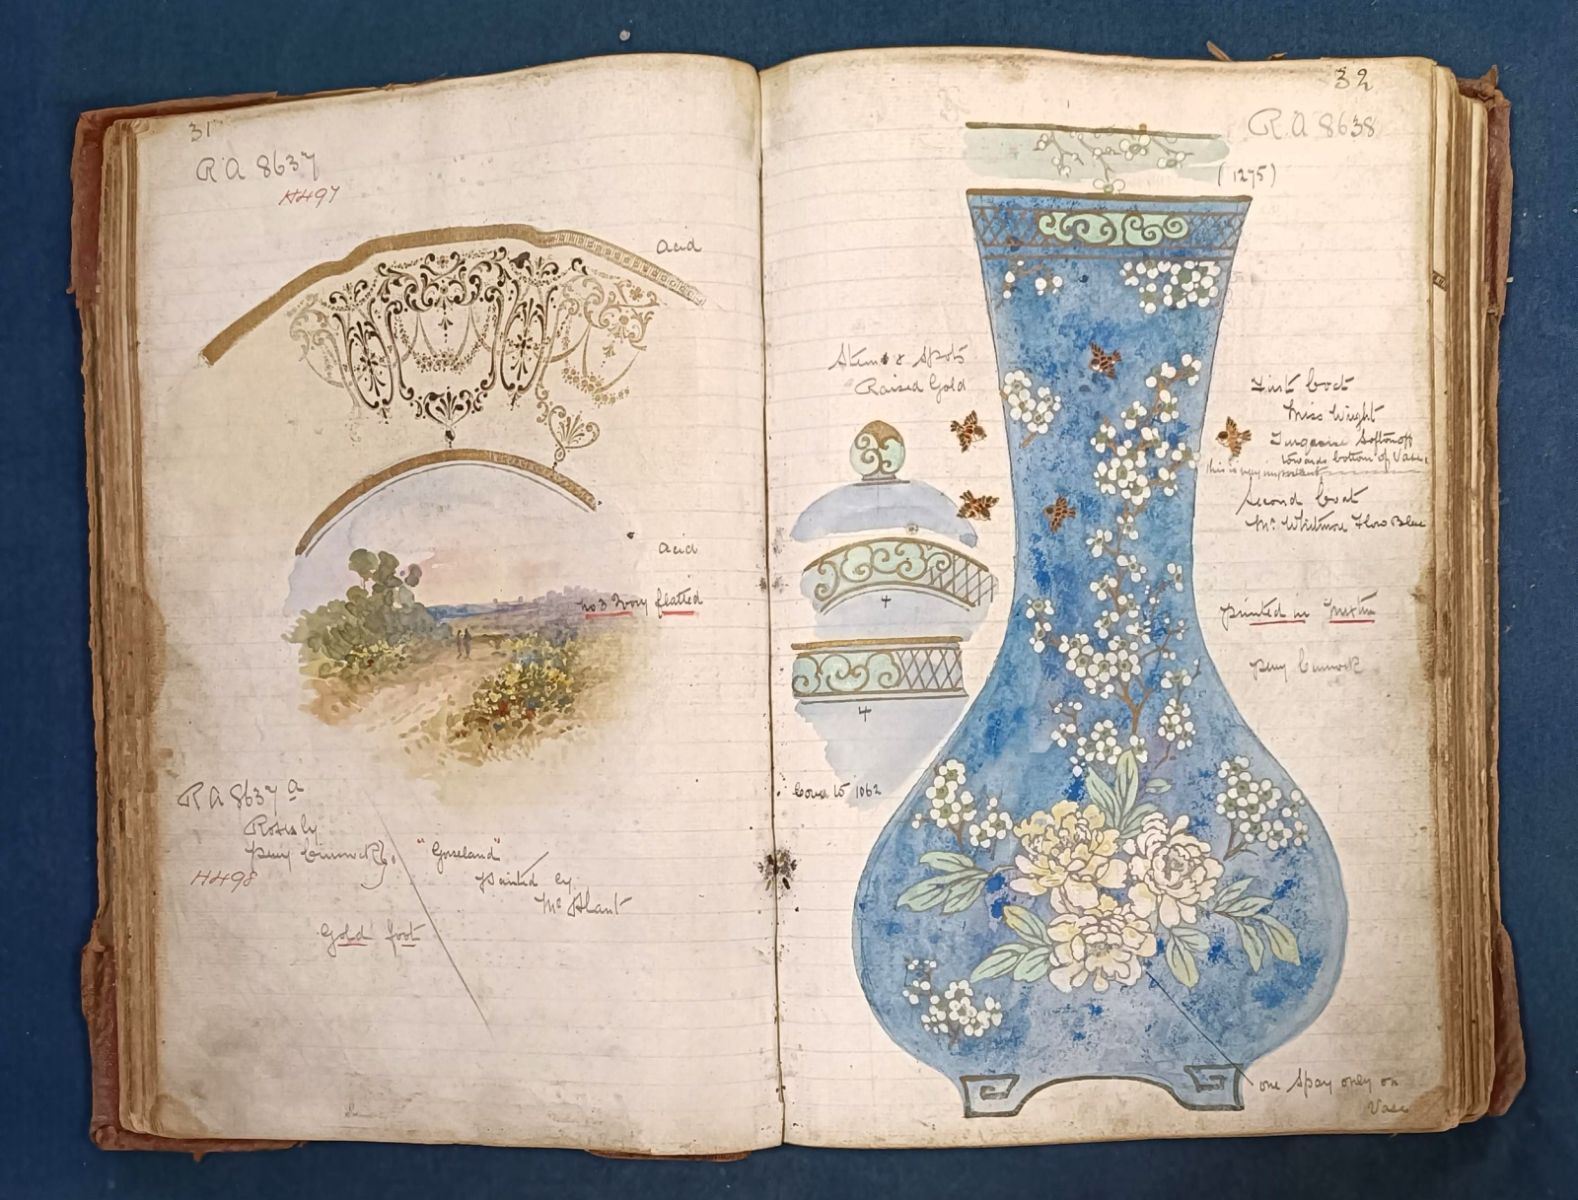 31
RA 8637
H497
Acid
Acid
No 3 Ivory flatted
RA 8637 a
H498
"Gorseland"
painted by
Mr Plant
Gold foot
32
RA 8638
(1275)
Stems & Spots
Raised Gold
First Coat
Miss Wright
Turquoise Softened off
towards bottom of Vase.
this is very important
Second Coat
Mr Whitmore Flow Blue
printed in
Percy
4
4
Cover to 1062
one Spray only on
Vase